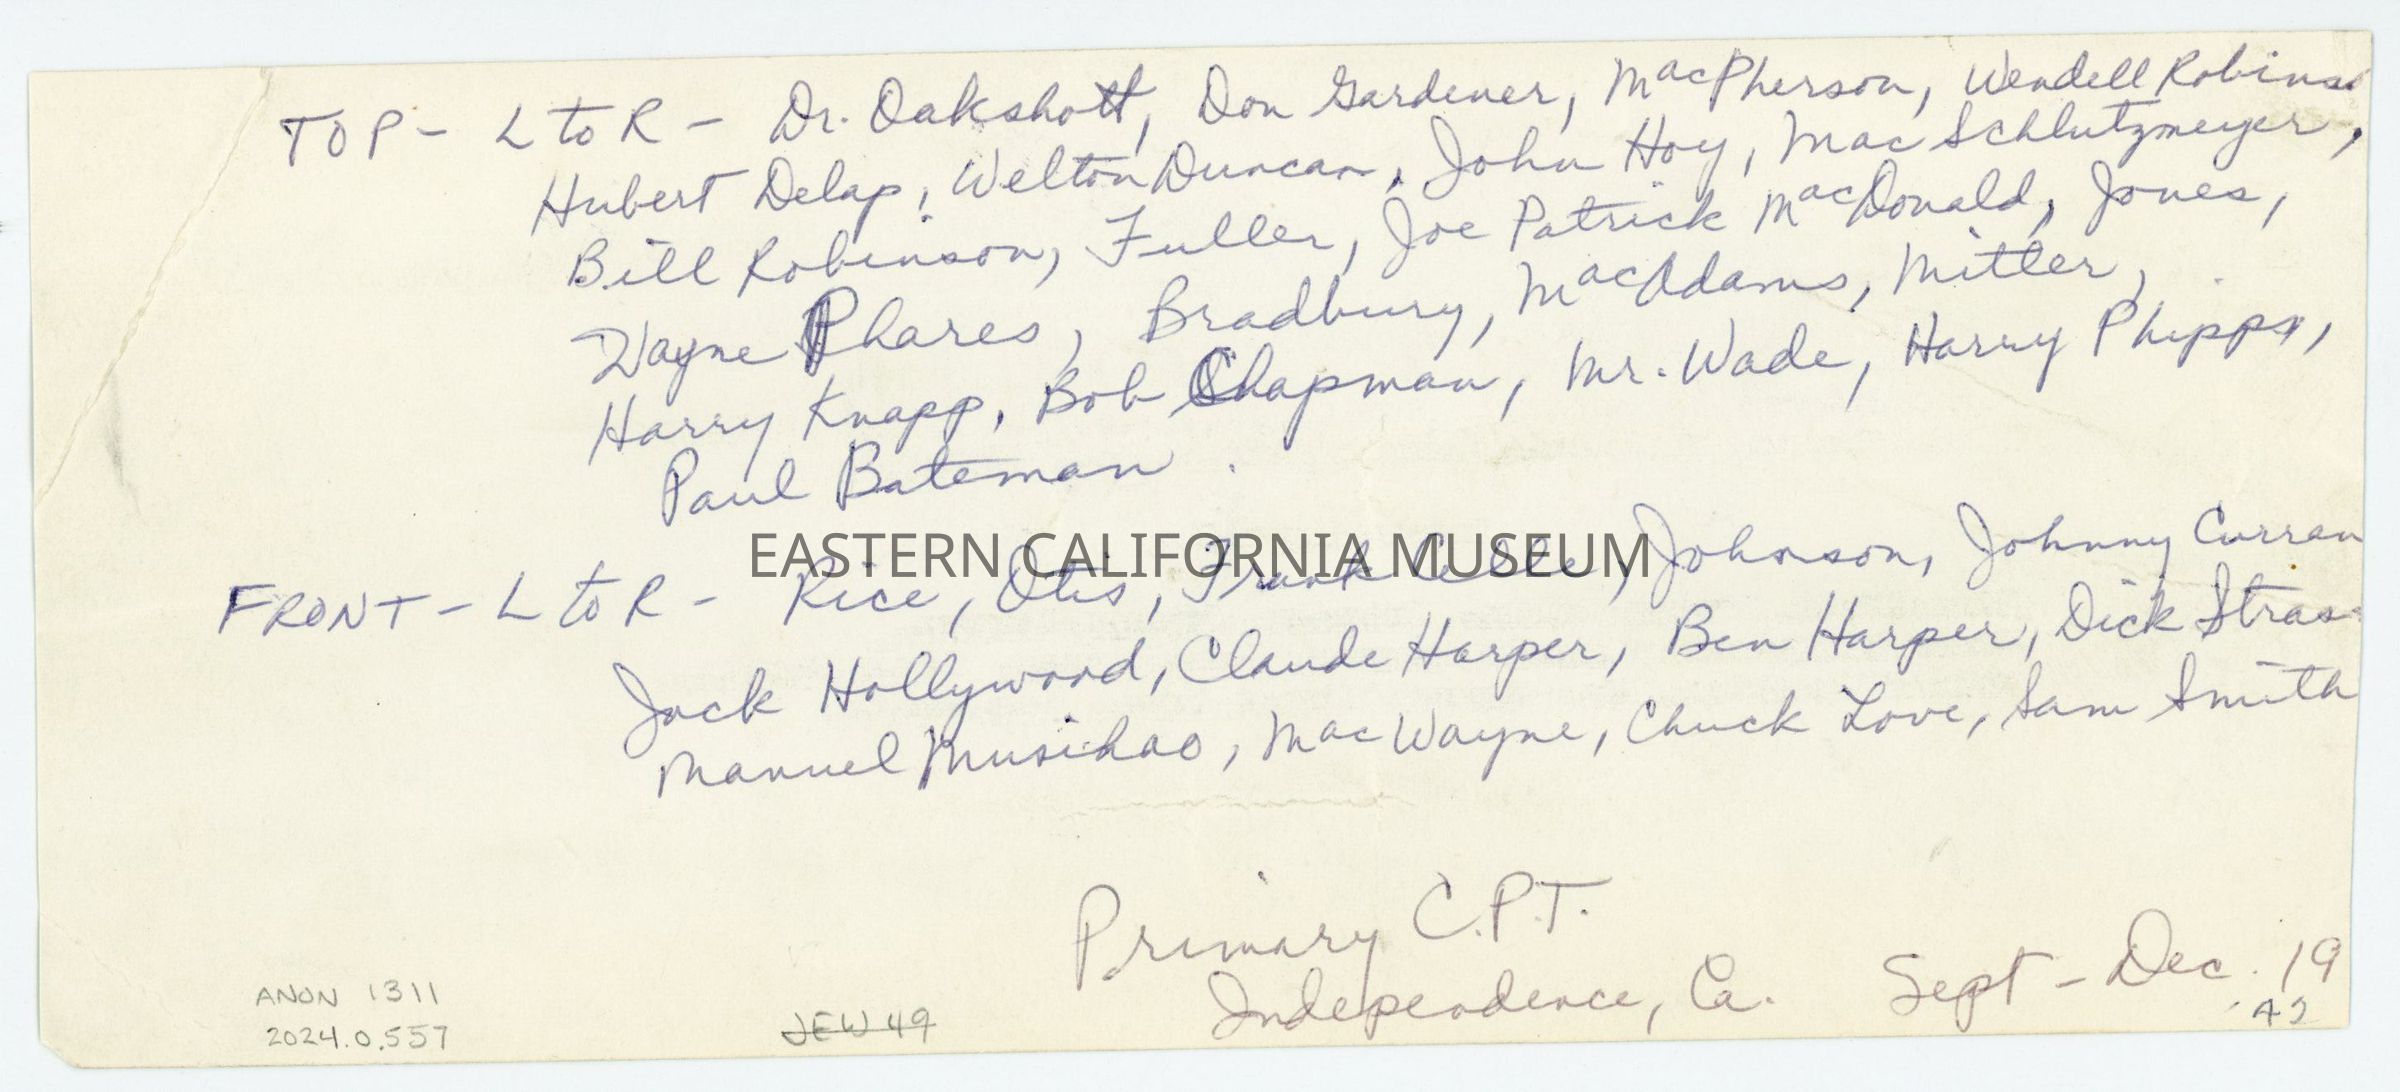 TOP - L to R - Dr. Oakshott, Don Gardener, MacPherson, Wendell Robinso
Hubert Delap, Welton Duncan, John Hoy, Mac Schlutzmeyer,
Bill Robinson, Fuller, Joe Patrick MacDonald, Jones,
Wayne Phares, Bradbury, MacAdams, Mitler,
Harry Knapp, Bob Chapman, Mr. Wade, Harry Phipps,
Paul Bateman.
EASTERN CALIFORNIA MUSEUM
FRONT - L to R - Rice, Otis, Frank, Johnson, Johnny Curran
Jack Hollywood, Claude Harper, Ben Harper, Dick Stras
Manuel Musihao, Mac Wayne, Chuck Love, Sam Smith
Primary C.P.T.
Independence, Ca. Sept - Dec. 19
42
ANON 1311
2024.0.557
JEW 49